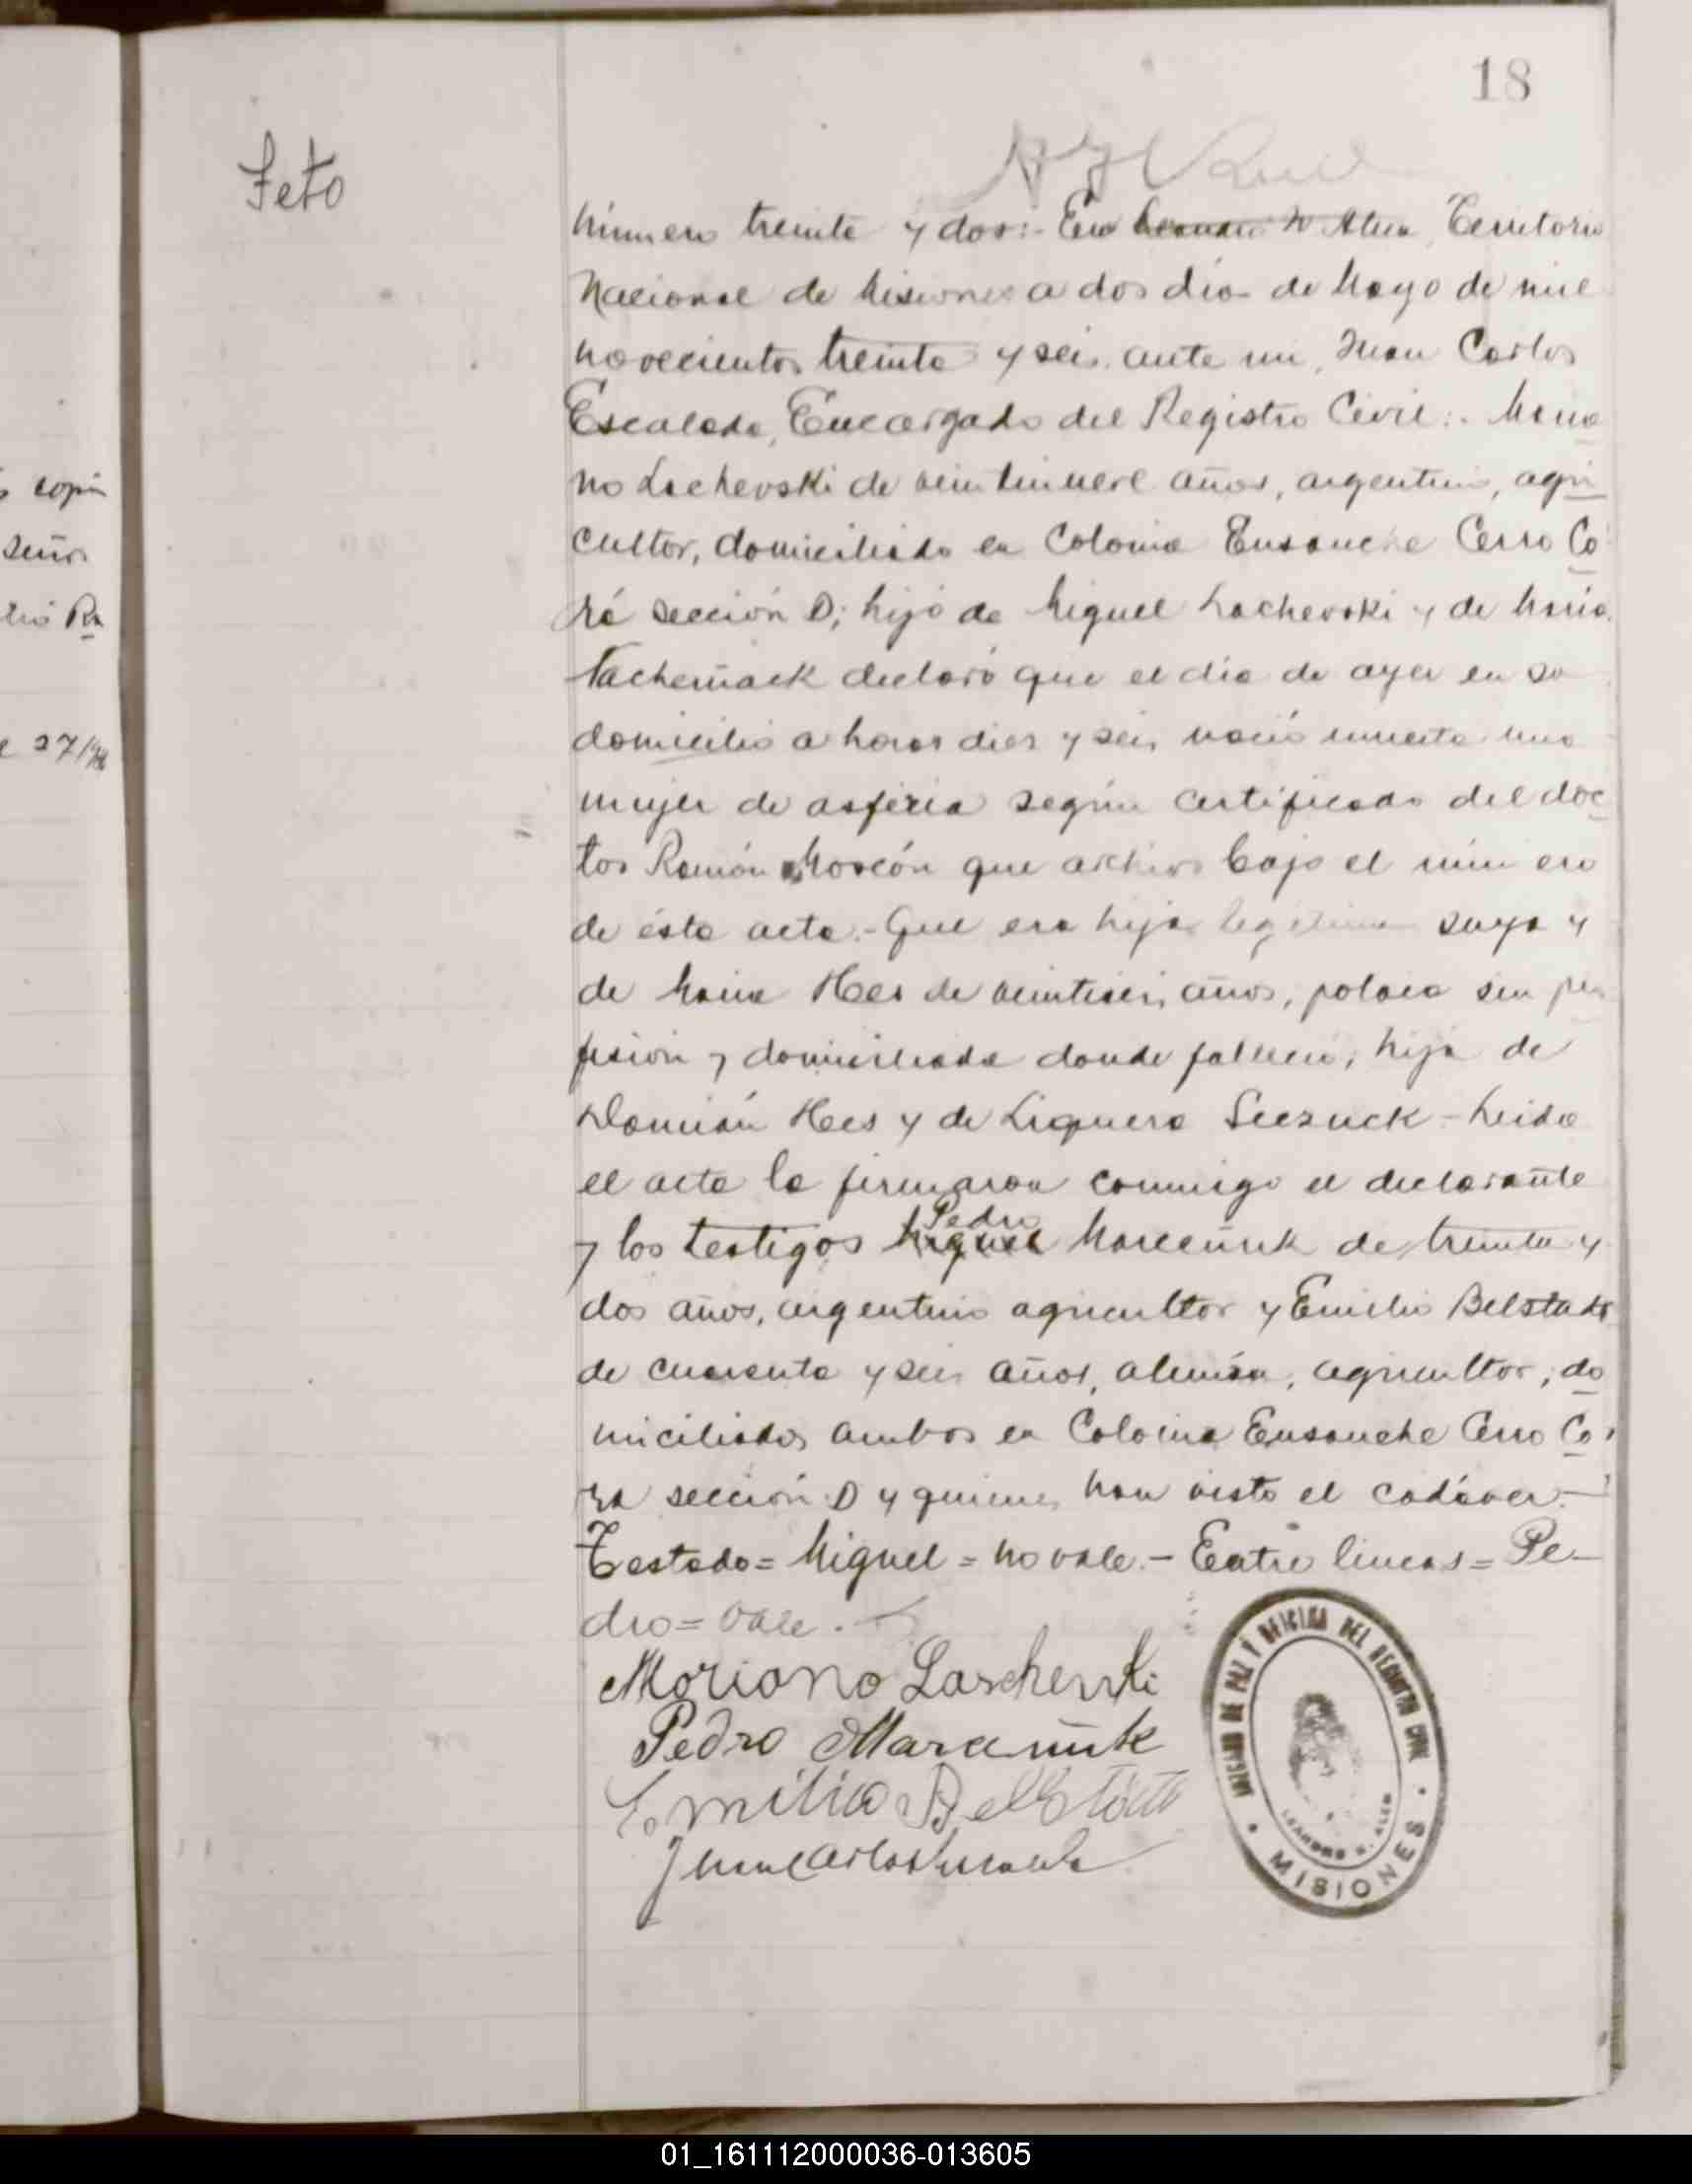 18
Feto
Número treinta y dos:- En Leandro N Alem, Territorio
Nacional de Misiones a dos dia de Mayo de mil
novecientos treinta y seis, ante mi, Juan Carlos
Escalada, Encargado del Registro Civil:- Maria
no Lachevski de veintinueve años, argentino, agri
cultor, domiciliado en Colonia Ensanche Cerro Co
rá sección D; hijo de Miguel Lachevski y de María
Tacheñack declaró que el día de ayer en su
domicilio a horas diez y seis nació muerta una
mujer de asfixia según certificado del doc
tor Ramón Moscón que archivo bajo el número
de ésta acta.- Que era hija legitima suya y
de Maria Hes de veintiseis años, polaca sin pro
fesión y domiciliada donde falleció, hija de
Damián Hees y de Liquera Seczuck - Leida
el acta la firmaron conmigo el declarante
Pedro
y los testigos Miguel Marceñuk de treinta y
dos años, argentino agricultor y Emilio Belstado
de cuarenta y seis años, alemán, agricultor, do
miciliados ambos en Colonia Ensanche Cerro Co
ra sección D y quienes han visto el cadáver.-
Testado = Miguel = no vale.- Entre lineas = Pe-
dro = vale.-
Moriano Laschevski
Pedro Marceñuk
Emilio Bellstätt
Juan Carlos Escalada
JUZGADO DE PAZ Y OFICINA DEL REGISTRO CIVIL
LEANDRO N. ALEM
· MISIONES ·
copia
señor
Ra
27/
01_161112000036-013605